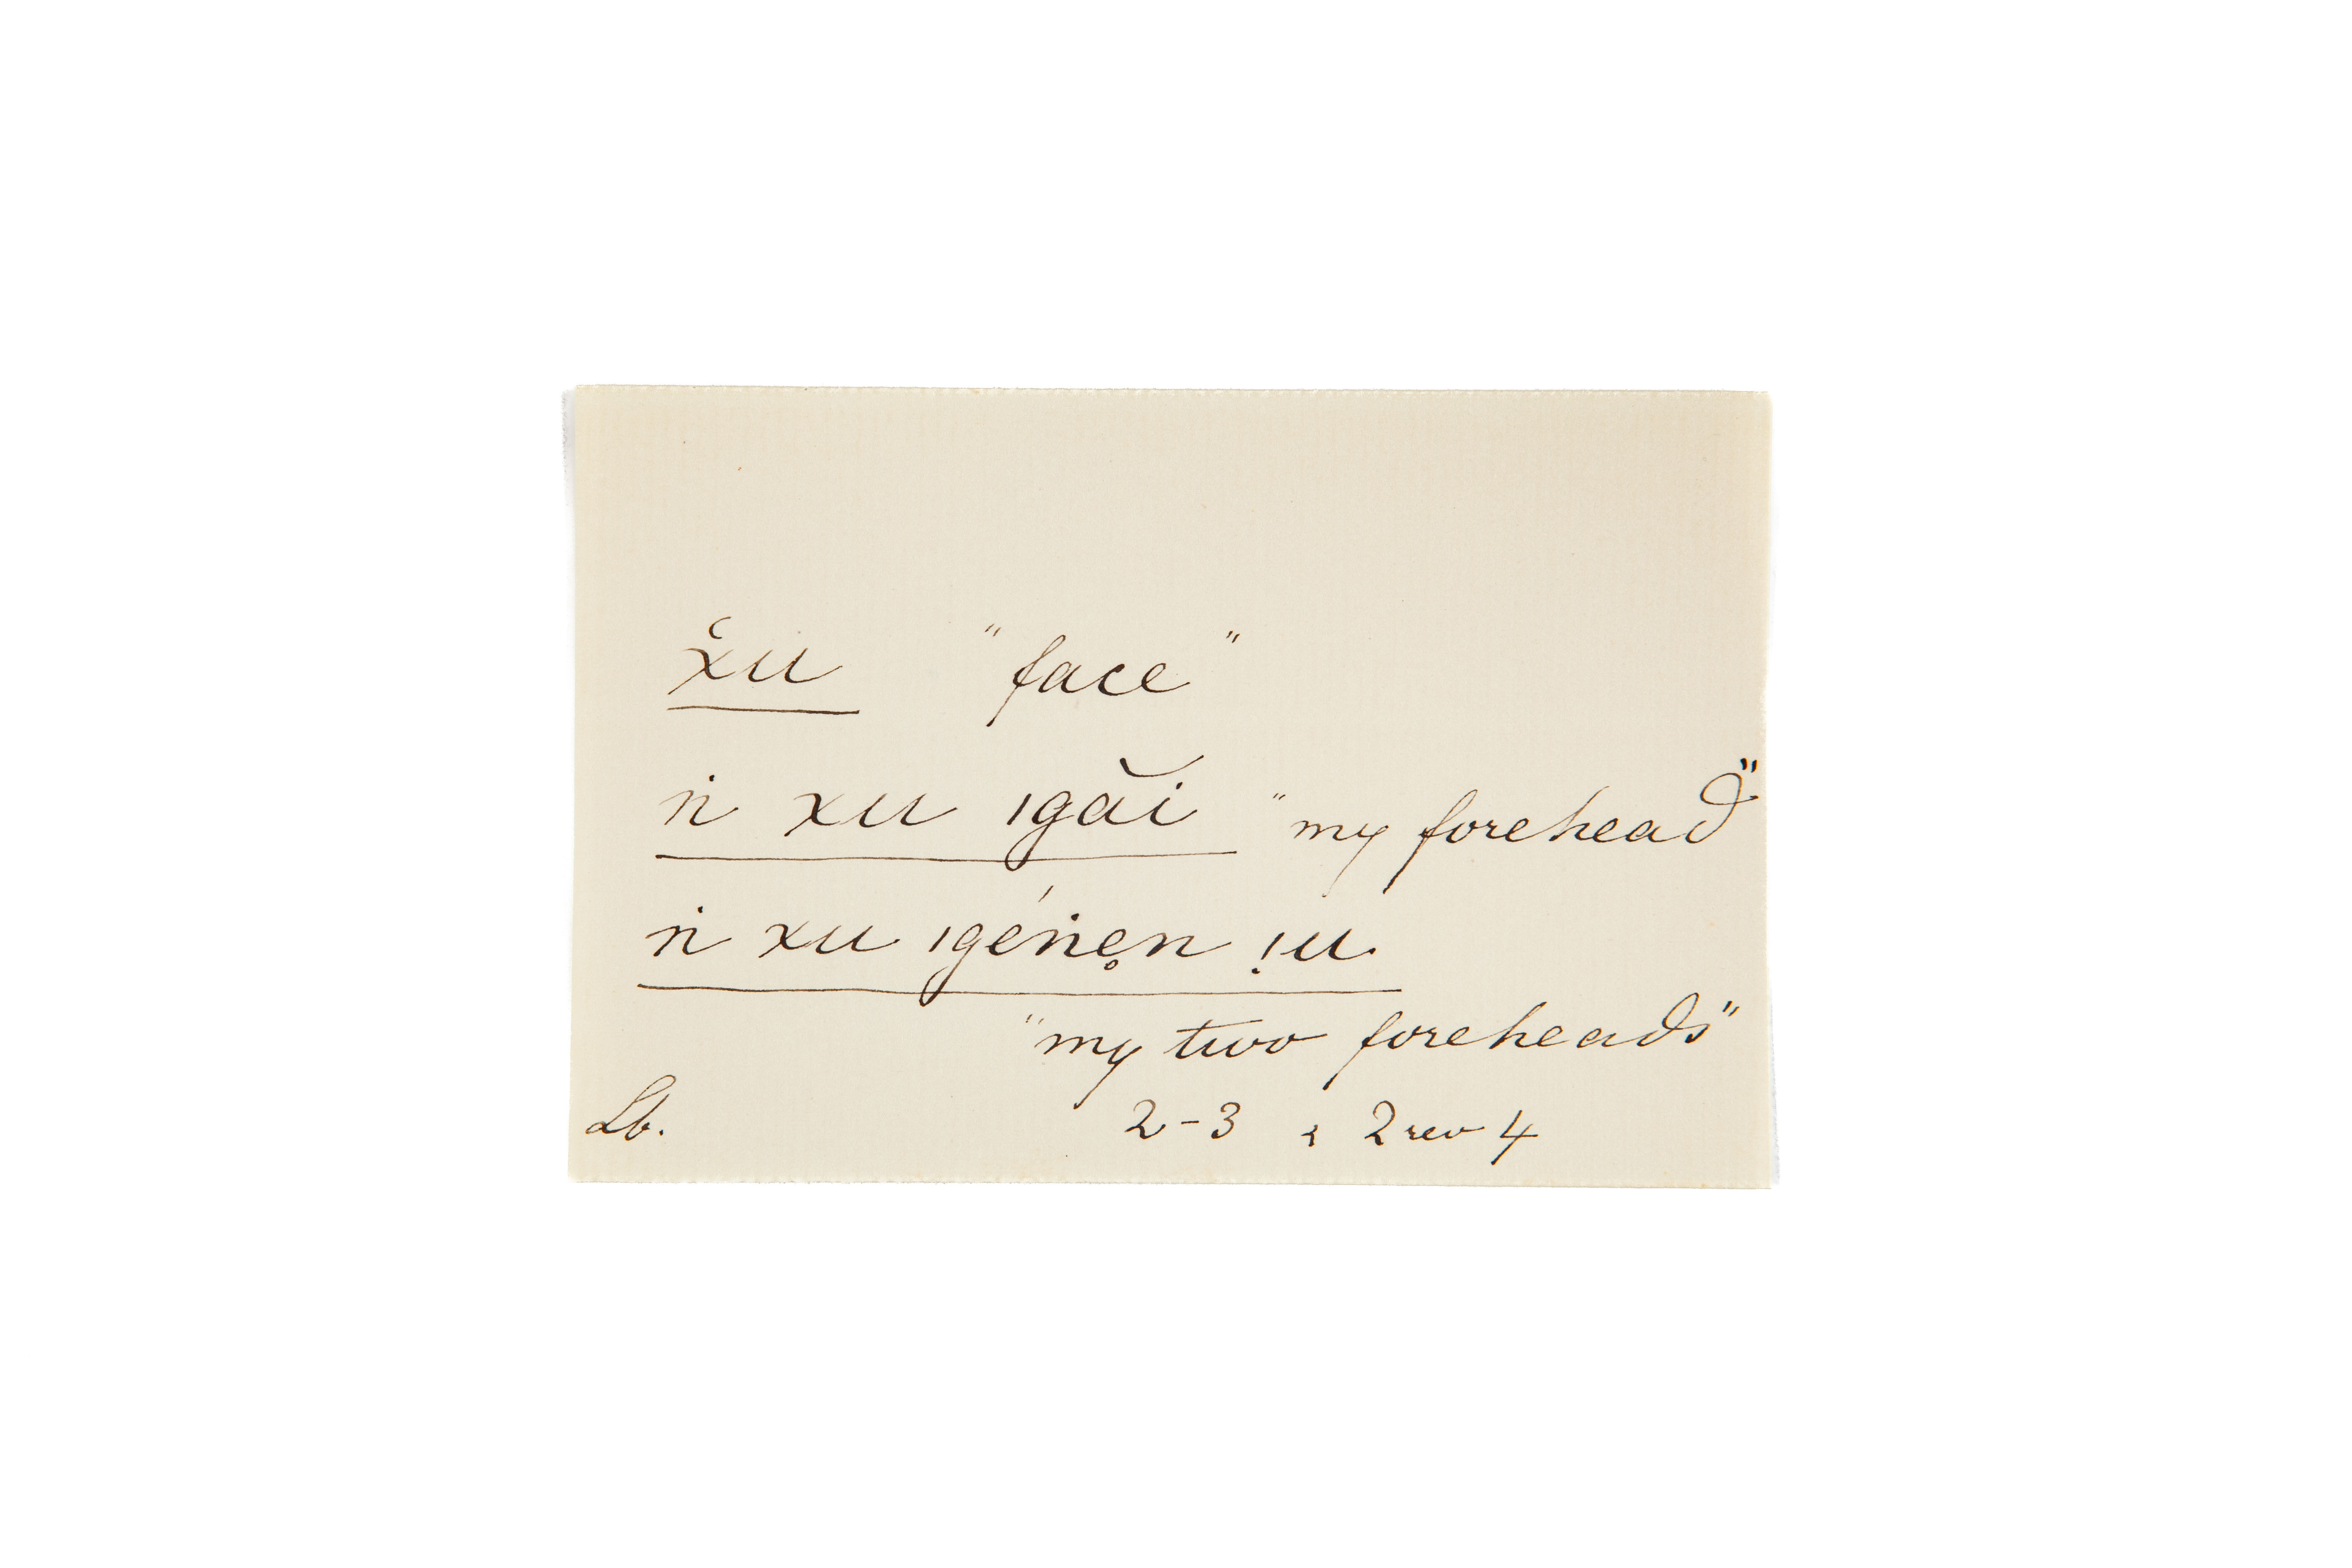 x̔u "face"
ṅ xu ıgăi "my forehead"
ṅ xu ıgéṅe̥n !u.
"my two foreheads"
Lb. 2-3 & 2 rev 4